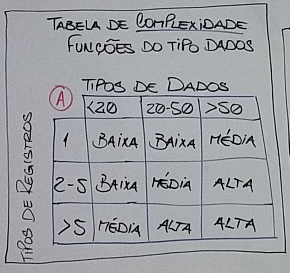 TABELA DE COMPLEXIDADE
FUNÇÕES DO TIPO DADOS
TIPOS DE DADOS
A <20 20-50 >50
TIPOS DE REGISTROS
1 BAIXA BAIXA MÉDIA
2-5 BAIXA MÉDIA ALTA
>5 MÉDIA ALTA ALTA